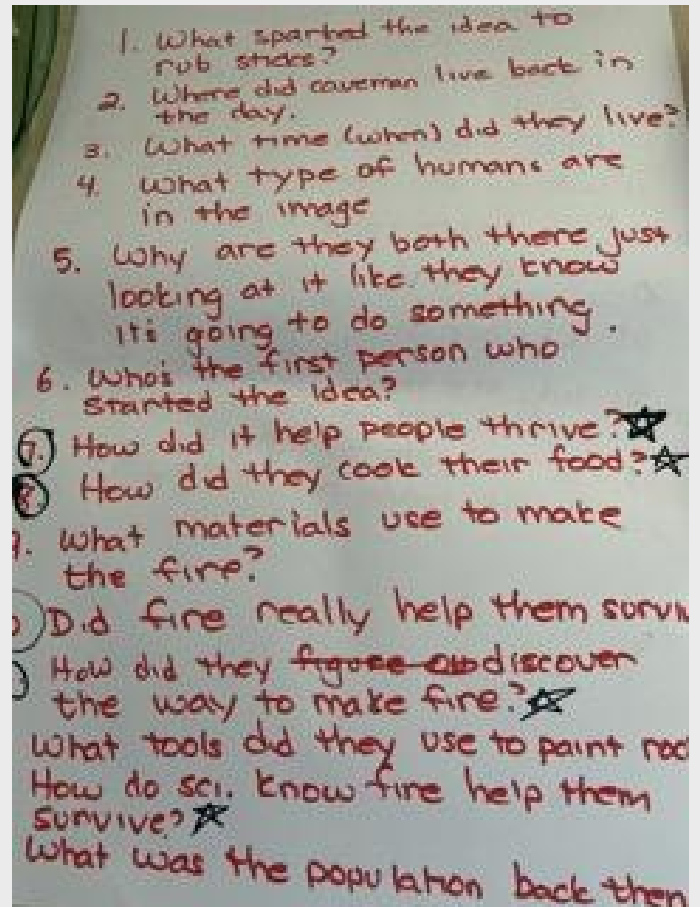 1. What sparked the idea to
rub sticks?
2. Where did caveman live back in
the day.
3. What time (when) did they live?
4. What type of humans are
in the image
5. Why are they both there just
looking at it like they know
its going to do something.
6. Who's the first person who
started the idea?
7. How did it help people thrive?
8. How did they cook their food?
9. What materials use to make
the fire?
Did fire really help them surviv
How did they figure out discover
the way to make fire?
What tools did they use to paint roc
How do sci. know fire help them
survive?
What was the population back then